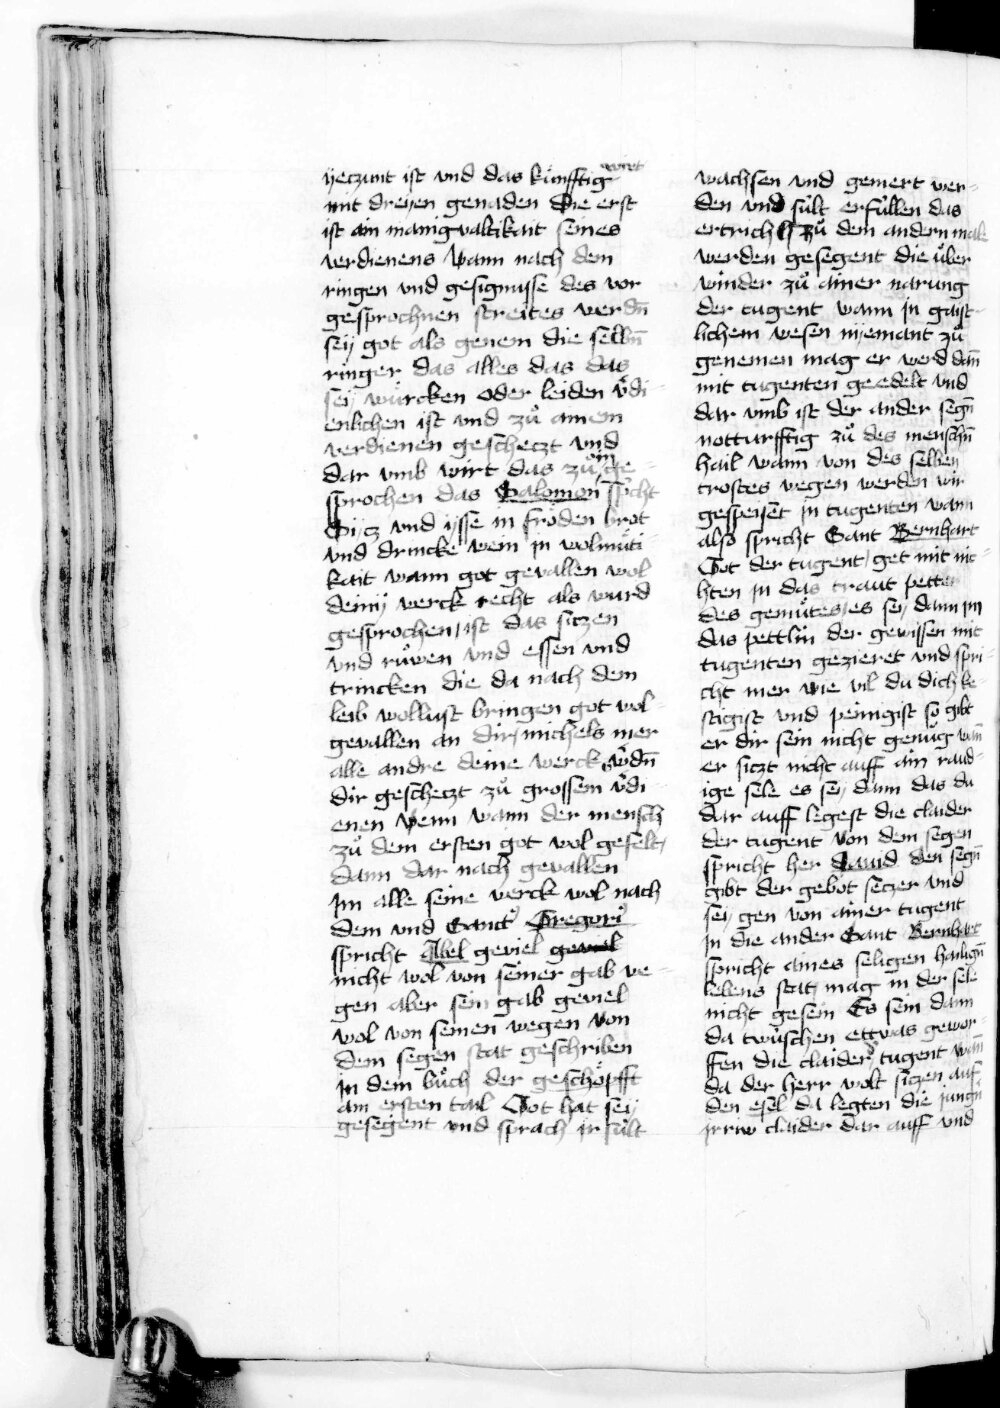 yeczunt ist vnd das künfftig wirt
mit dreyen genaden Die erst
ist ain manigualtikait seines
verdienens Wann nach dem
ringen vnd gesignusse des vor
gesprochnen streites werdn̄
sey got als genem die selbn̄
ringer das alles das das
sey würcken oder leiden v̄di-
enlichen ist vnd zů ainem
verdienen geschetzt vnd
dar vmb wirt das zů im ge-
sprochen das Salomon spͥcht
Sicz vnd ysse in fröden brot
vnd drincke wein in wolmüti-
kait wann got geuallen wol
deiny werck recht als wurd
gesprochen / ist das siczen
vnd růwen vnd essen vnd
trincken die da nach dem
leib wollust bringen got wol-
geuallen an dir / michels mer
alle andre deine werck v̄dn̄
dir geschetzt zů grossem v̄di-
enen Wenn wann der mensch
zů dem ersten got wol gefelt /
dann dar nach geuallen
Im alle seine werck wol nach
dem vnd Sanctͥ Gregoriͥ
spricht Abel geuiel geuiel
nicht wol von seiner gab we-
gen aber sein gab geuiel
wol von seinen wegen Von
dem segen stat geschriben
In dem bůch der geschöpfft
am ersten tail Got hat sey
gesegent vnd sprach ir sült
wachsen vnd gemert wer-
den vnd sült erfüllen das
ertrich Zů dem andern male
werden gesegent die über
winder zů ainer narung
der tugent wann in gaist-
lichem wesen nyemant zů
genemen mag er werd dan̄
mit tugenten geedelt vnd
dar vmb ist der ander segn̄
notturfftig zů des menschn̄
hail wann von des selben
trostes wegen werden wir
gespeiset in tugenten wann
also spricht Sant Bernhart
Got der tugent / get mit nic
hten in das traut petten
des gemütes / es sey dann im
das pettlin der gewissen mit
tugenten gezieret vnd spri-
cht mer wie vil du dich ke-
stigist vnd peinigist so gibt
er dir sein nicht genůg wan̄
er siczt nicht auff ain raud-
ige sele es sey dann das du
dar auff legest die claider
der tugent Von dem segen
spricht her Dauid den segn̄
gibt der gebot seczer vnd
sey gen von ainer tugent
In die ander Sant Bernhart
spricht aines seligen hailign̄
lebens stat / mag in der sele
nicht gesein Es sein dann
da twüschen ettwas gewor-
ffen die claider d' tugent wan̄
da der herr wolt siczen auf
den esel da legten die jungn̄
irrw claider dar auff vnd